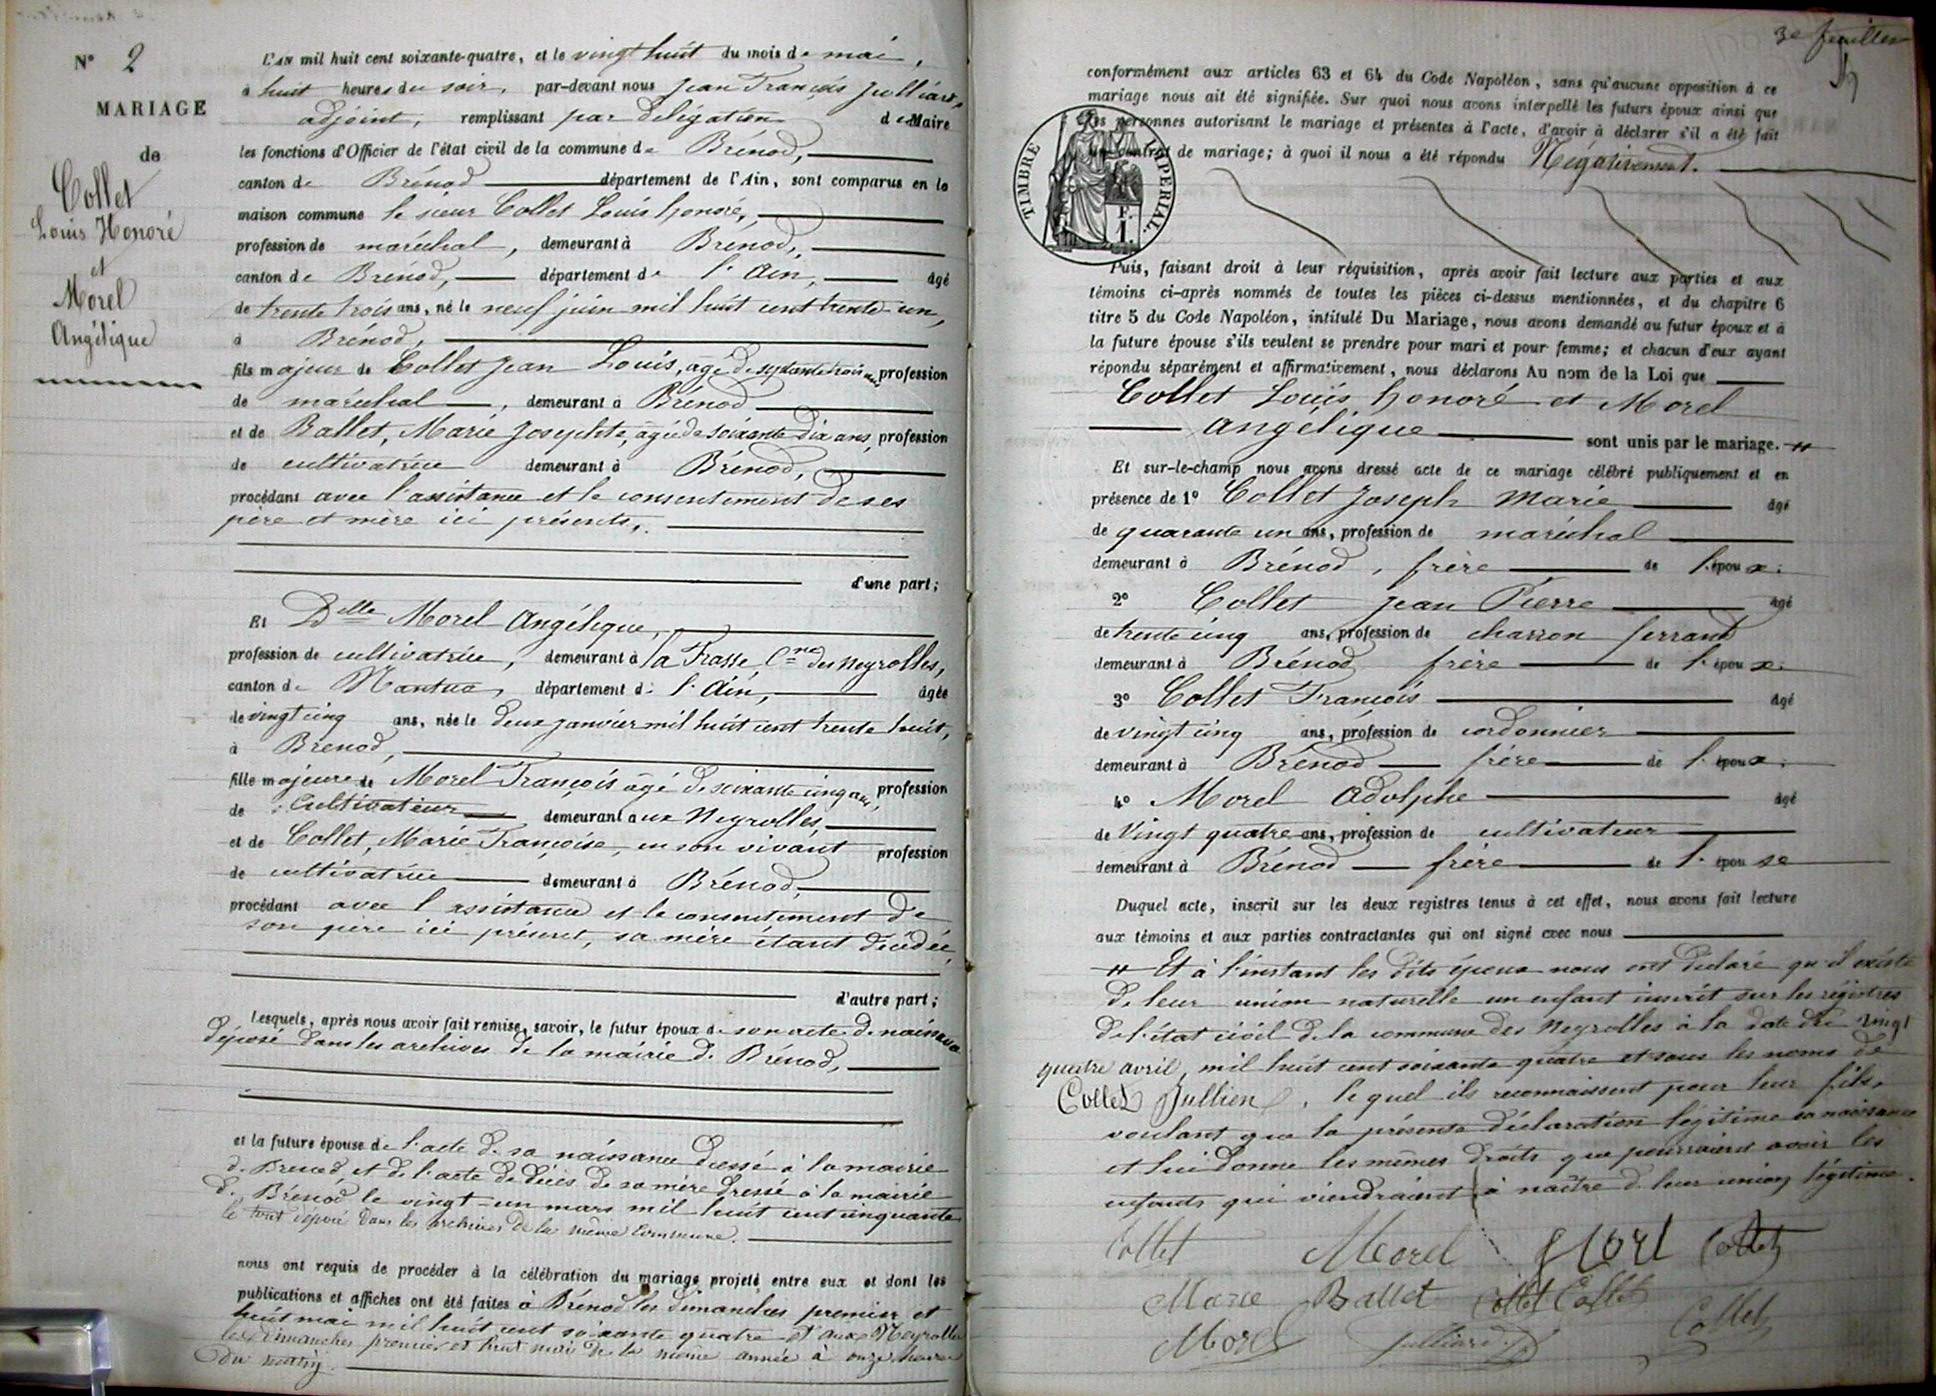 N° 2
MARIAGE
de
Collet
Louis Honoré
et
Morel
Angélique
L'AN mil huit cent soixante-quatre, et le vingt huit du mois de mai,
à huit heures du soir, par-devant nous Jean François Julliard,
adjoint, remplissant par délégation de Maire
les fonctions d'Officier de l'état civil de la commune de Brénod,
canton de Brénod département de l'Ain, sont comparus en la
maison commune le sieur Collet Louis honoré,
profession de maréchal, demeurant à Brénod,
canton de Brénod, département de l'Ain, âgé
de trente trois ans, né le neuf juin mil huit cent trente un,
à Brénod,
fils majeur de Collet Jean Louis, âgé de septante trois ans, profession
de maréchal, demeurant à Brénod
et de Ballet, Marie Josephte, âgée de soixante dix ans, profession
de cultivatrice demeurant à Brénod,
procédant avec l'assistance et le consentement de ses
père et mère ici présents,
d'une part;
Et Delle Morel Angélique,
profession de cultivatrice, demeurant à la Frasse Cne des Neyrolles,
canton de Nantua, département de l'Ain, âgée
de vingt cinq ans, née le deux janvier mil huit cent trente huit,
à Brenod,
fille majeure de Morel François âgé de soixante cinq ans, profession
de cultivateur demeurant aux Neyrolles,
et de Collet, Marie Françoise, en son vivant profession
de cultivatrice demeurant à Brénod,
procédant avec l'assistance et le consentement de
son père ici présent, sa mère étant décédée,
d'autre part;
Lesquels, après nous avoir fait remise, savoir, le futur époux de son acte de naissance
déposé dans les archives de la mairie de Brénod,
et la future épouse de l'acte de sa naissance dressé à la mairie
de Brenod et de l'acte de décès de sa mère dressé à la mairie
de Brénod le vingt-un mars mil huit cent cinquante
le tout déposé dans les archives de la même commune.
nous ont requis de procéder à la célébration du mariage projeté entre eux et dont les
publications et affiches ont été faites à Brénod les dimanches premier et
huit mai mil huit cent soixante quatre et aux Neyrolles
les dimanches premier et huit mai de la même année à onze heures
du matin.
3e feuillet
conformément aux articles 63 et 64 du Code Napoléon, sans qu'aucune opposition à ce
mariage nous ait été signifiée. Sur quoi nous avons interpellé les futurs époux ainsi que
les personnes autorisant le mariage et présentes à l'acte, d'avoir à déclarer s'il a été fait
un contrat de mariage; à quoi il nous a été répondu Négativement.
TIMBRE IMPÉRIAL.
F.
1.
Puis, faisant droit à leur réquisition, après avoir fait lecture aux parties et aux
témoins ci-après nommés de toutes les pièces ci-dessus mentionnées, et du chapitre 6
titre 5 du Code Napoléon, intitulé Du Mariage, nous avons demandé au futur époux et à
la future épouse s'ils veulent se prendre pour mari et pour femme; et chacun d'eux ayant
répondu séparément et affirmativement, nous déclarons Au nom de la Loi que
Collet Louis honoré et Morel
Angélique sont unis par le mariage. #
Et sur-le-champ nous avons dressé acte de ce mariage célébré publiquement et en
présence de 1° Collet Joseph Marie âgé
de quarante un ans, profession de maréchal
demeurant à Brénod, frère de l'époux.
2° Collet Jean Pierre âgé
de trente cinq ans, profession de charron ferrand
demeurant à Brénod frère de l'époux.
3° Collet François âgé
de vingt cinq ans, profession de cordonnier
demeurant à Brénod frère de l'époux.
4° Morel Adolphe âgé
de Vingt quatre ans, profession de cultivateur
demeurant à Brénod frère de l'épouse
Duquel acte, inscrit sur les deux registres tenus à cet effet, nous avons fait lecture
aux témoins et aux parties contractantes qui ont signé avec nous
# Et à l'instant les dits époux nous ont déclaré qu'il existe
de leur union naturelle un enfant inscrit sur les régistres
de l'état civil de la commune des Neyrolles à la date du vingt
quatre avril, mil huit cent soixante quatre et sous les noms de
Collet Jullien, lequel ils reconnaissent pour leur fils,
voulant que la présente déclaration légitime sa naissance
et lui donne les mêmes droits que pourraient avoir les
enfants qui viendraient à naître de leur union légitime.
Collet Morel Morl Collet
Marie Ballet Collet Collet
Collet
Morel Julliard